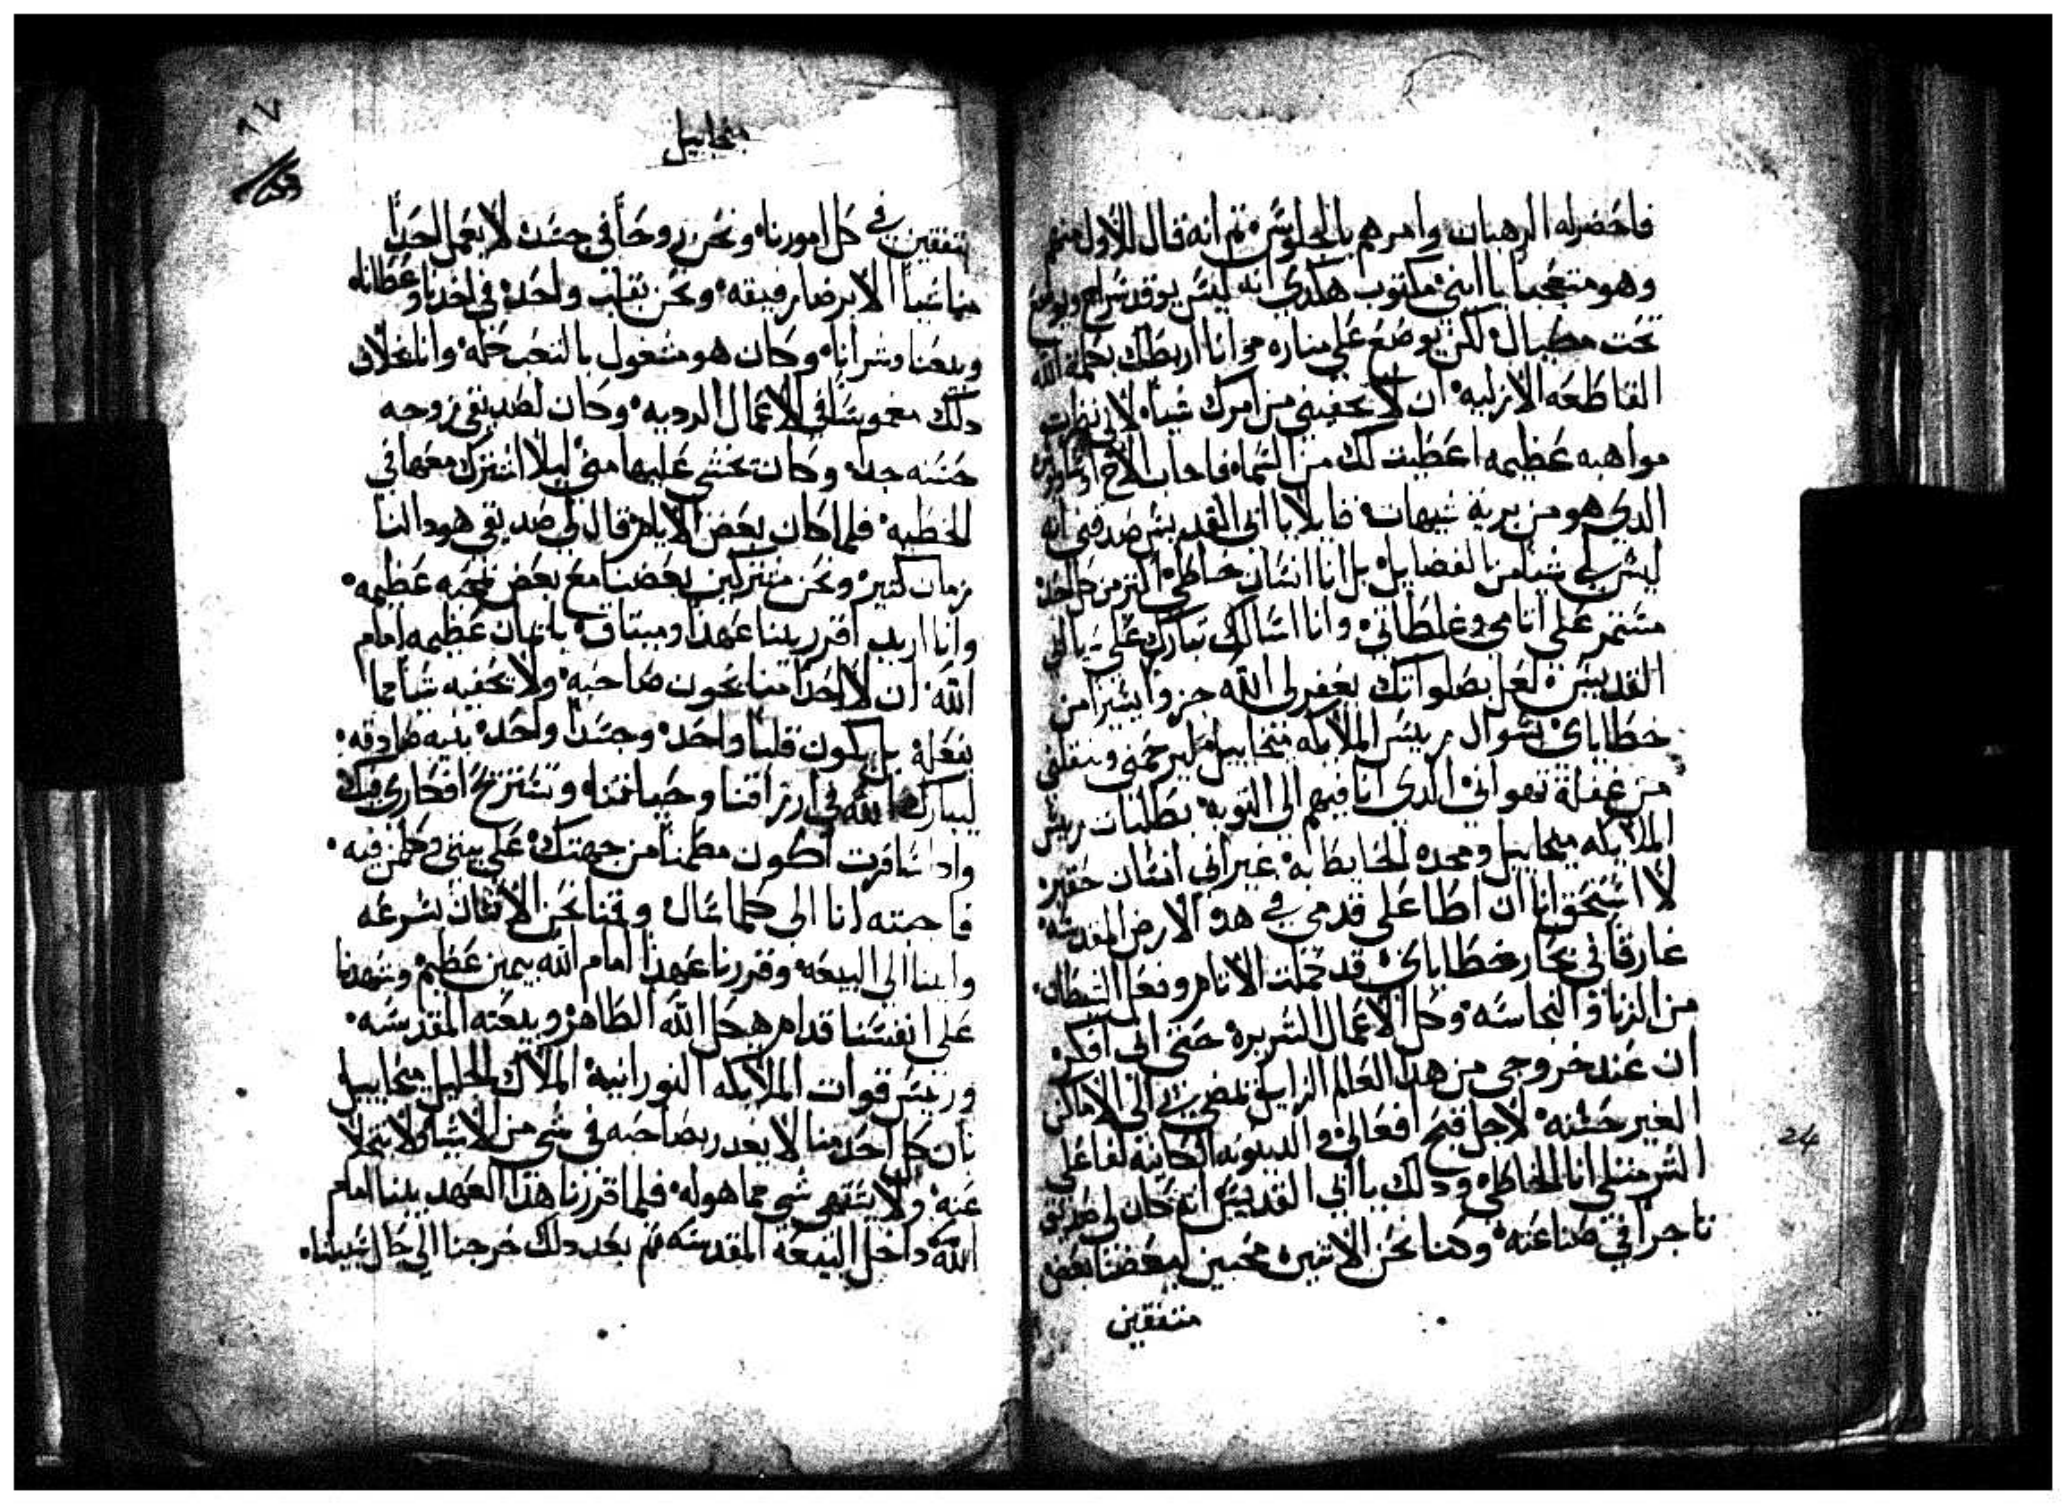 فاحضر له الرهبان وامرهم بالجلوس ثم انه قال للاول منهم
وهو متعجبا يا ابني مكتوب هكدي انه ليس يوقد سراج ويوضع
تحت مكيال لكن يوضع على مناره وانا اربطك بكلمة الله
القاطعه الازليه ان لا تخفيني من امرك شيا لاني نظرت
مواهبه عظيمه اعطيت لك من السماء فاجاب الاخ
الدي هو من برية شيهات قايلا يا ابي القديس صدقني انه
ليس لي شيا من الفضايل بل انا انسان خاطي اكتر من كل احد
مستمر على اتامي وغلطاتي وانا اسالك تبارك علي يا ابي
القديس لعل بصلواتك يغفر لي الله جزوا يسيرا من
خطاياي بسوال رييس الملايكه ميخاييل ليرحمني وينقلني
من غفلة تهواني الدي انا فيهم الى التوبه بطلبات رييس
الملايكه ميخاييل ومجده الحايط به غير اني انسان حقير
لا استحق انا ان اطا على قدمي في هده الارض المقدسه
غارقا في بحار خطاياي قد حملت الاتام وفعل الشيطان
من الزنا والنجاسه وكل الاعمال الشريره حتى اني افكر
ان عند خروجي من هدا العالم الزايل تمضي بي الى الاماكن
الغير حسنه لاجل قبح افعالي والدينونه الكاينة لفاعلي
الشر متلي انا الخاطي ودلك يا ابي القديس انه كان لي صديق
تاجرا في صناعته وكنا نحن الاتنين محبين لبعضنا بعض
متفقين
ميخاييل
٩٧
متفقين في كل امورنا ونحن روحا في جسد لا يعمل احدنا
شيا الا برضا رفيقه ونحن بقلب واحد في اخدنا وعطانا
وبيعنا وشرانا وكان هو مشغول بالتعب كله وانا بخلاف
دلك مغموسا في الاعمال الرديه وكان لصديقي زوجه
حسنه جدا وكان يخشي عليها مني ليلا اشترك معها في
الخطيه فلما كان بعض الايام قال لي صديقي هودا لنا
زمان كتير ونحن مشتركين بعضنا مع بعض بمحبه عظيمه
وانا اريد اقرر بيننا عهدا وميتاق بايمان عظيمه امام
الله ان لا احدا منا يخون صاحبه ولا يخفيه شيا مما
يفعله بل يكون قلبا واحد وجسدا واحد بنيه صادقه
ليبارك الله في ارزاقنا وحياتنا وتستريح افكاري فيك
وادا سافرت اكون مطمنا من جهتك على بيتي وكلمن فيه
فاجبته انا الى كلما سال وقمنا نحن الاتنان بسرعه
واتينا الى البيعه وقررنا عهدا امام الله بيمين عظيم وشهدنا
على انفسنا قدام هيكل الله الطاهر وبيعته المقدسه
ورييس قوات الملايكه النورانية الملاك الجليل ميخاييل
بان كل احد منا لا يغدر بصاحبه في شي من الاشيا ولا يتخلا
عنه ولا يشتهي شي مما هو له فلما قررنا هدا العهد بيننا امام
الله داخل البيعه المقدسه تم بعد دلك خرجنا الى حال سبيلنا
24